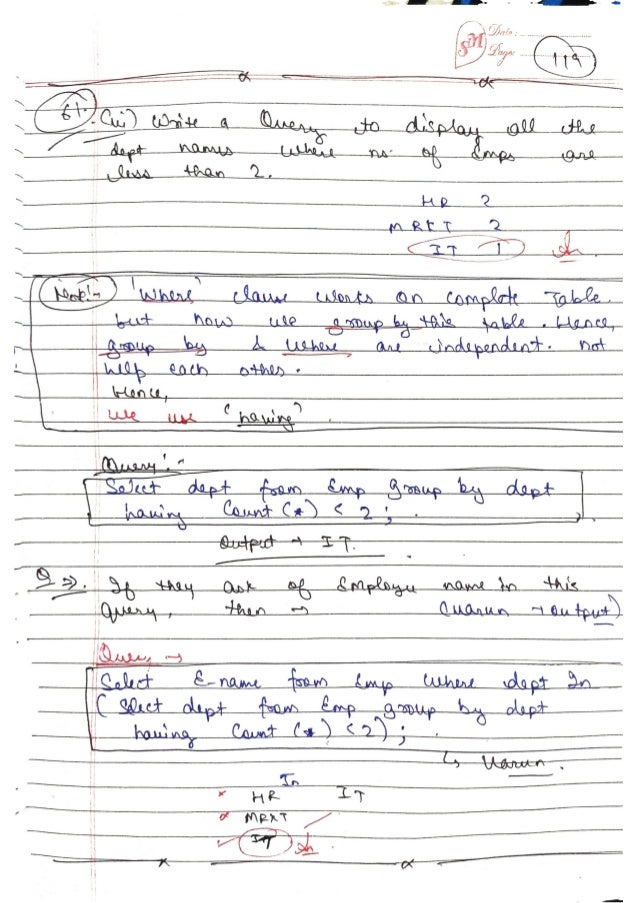 SM Date:
Page: 119
61. (iii) Write a Query to display all the
dept names where no. of Emps are
less than 2.
HR 2
MRKT 2
IT 1 An
Note:- 'Where' clause works on complete Table.
but now use group by this table. Hence,
group by & where are independent. not
help each other.
Hence,
we use 'having'.
Query:-
Select dept from Emp group by dept
having Count (*) < 2;
Output → IT.
Q ⇒. If they ask of Employee name in this
query, then → (Varun → output)
Query →
Select E-name from Emp where dept In
(Select dept from Emp group by dept
having Count (*) < 2);
↳ Varun.
In
× HR IT
× MRKT
✓ IT An